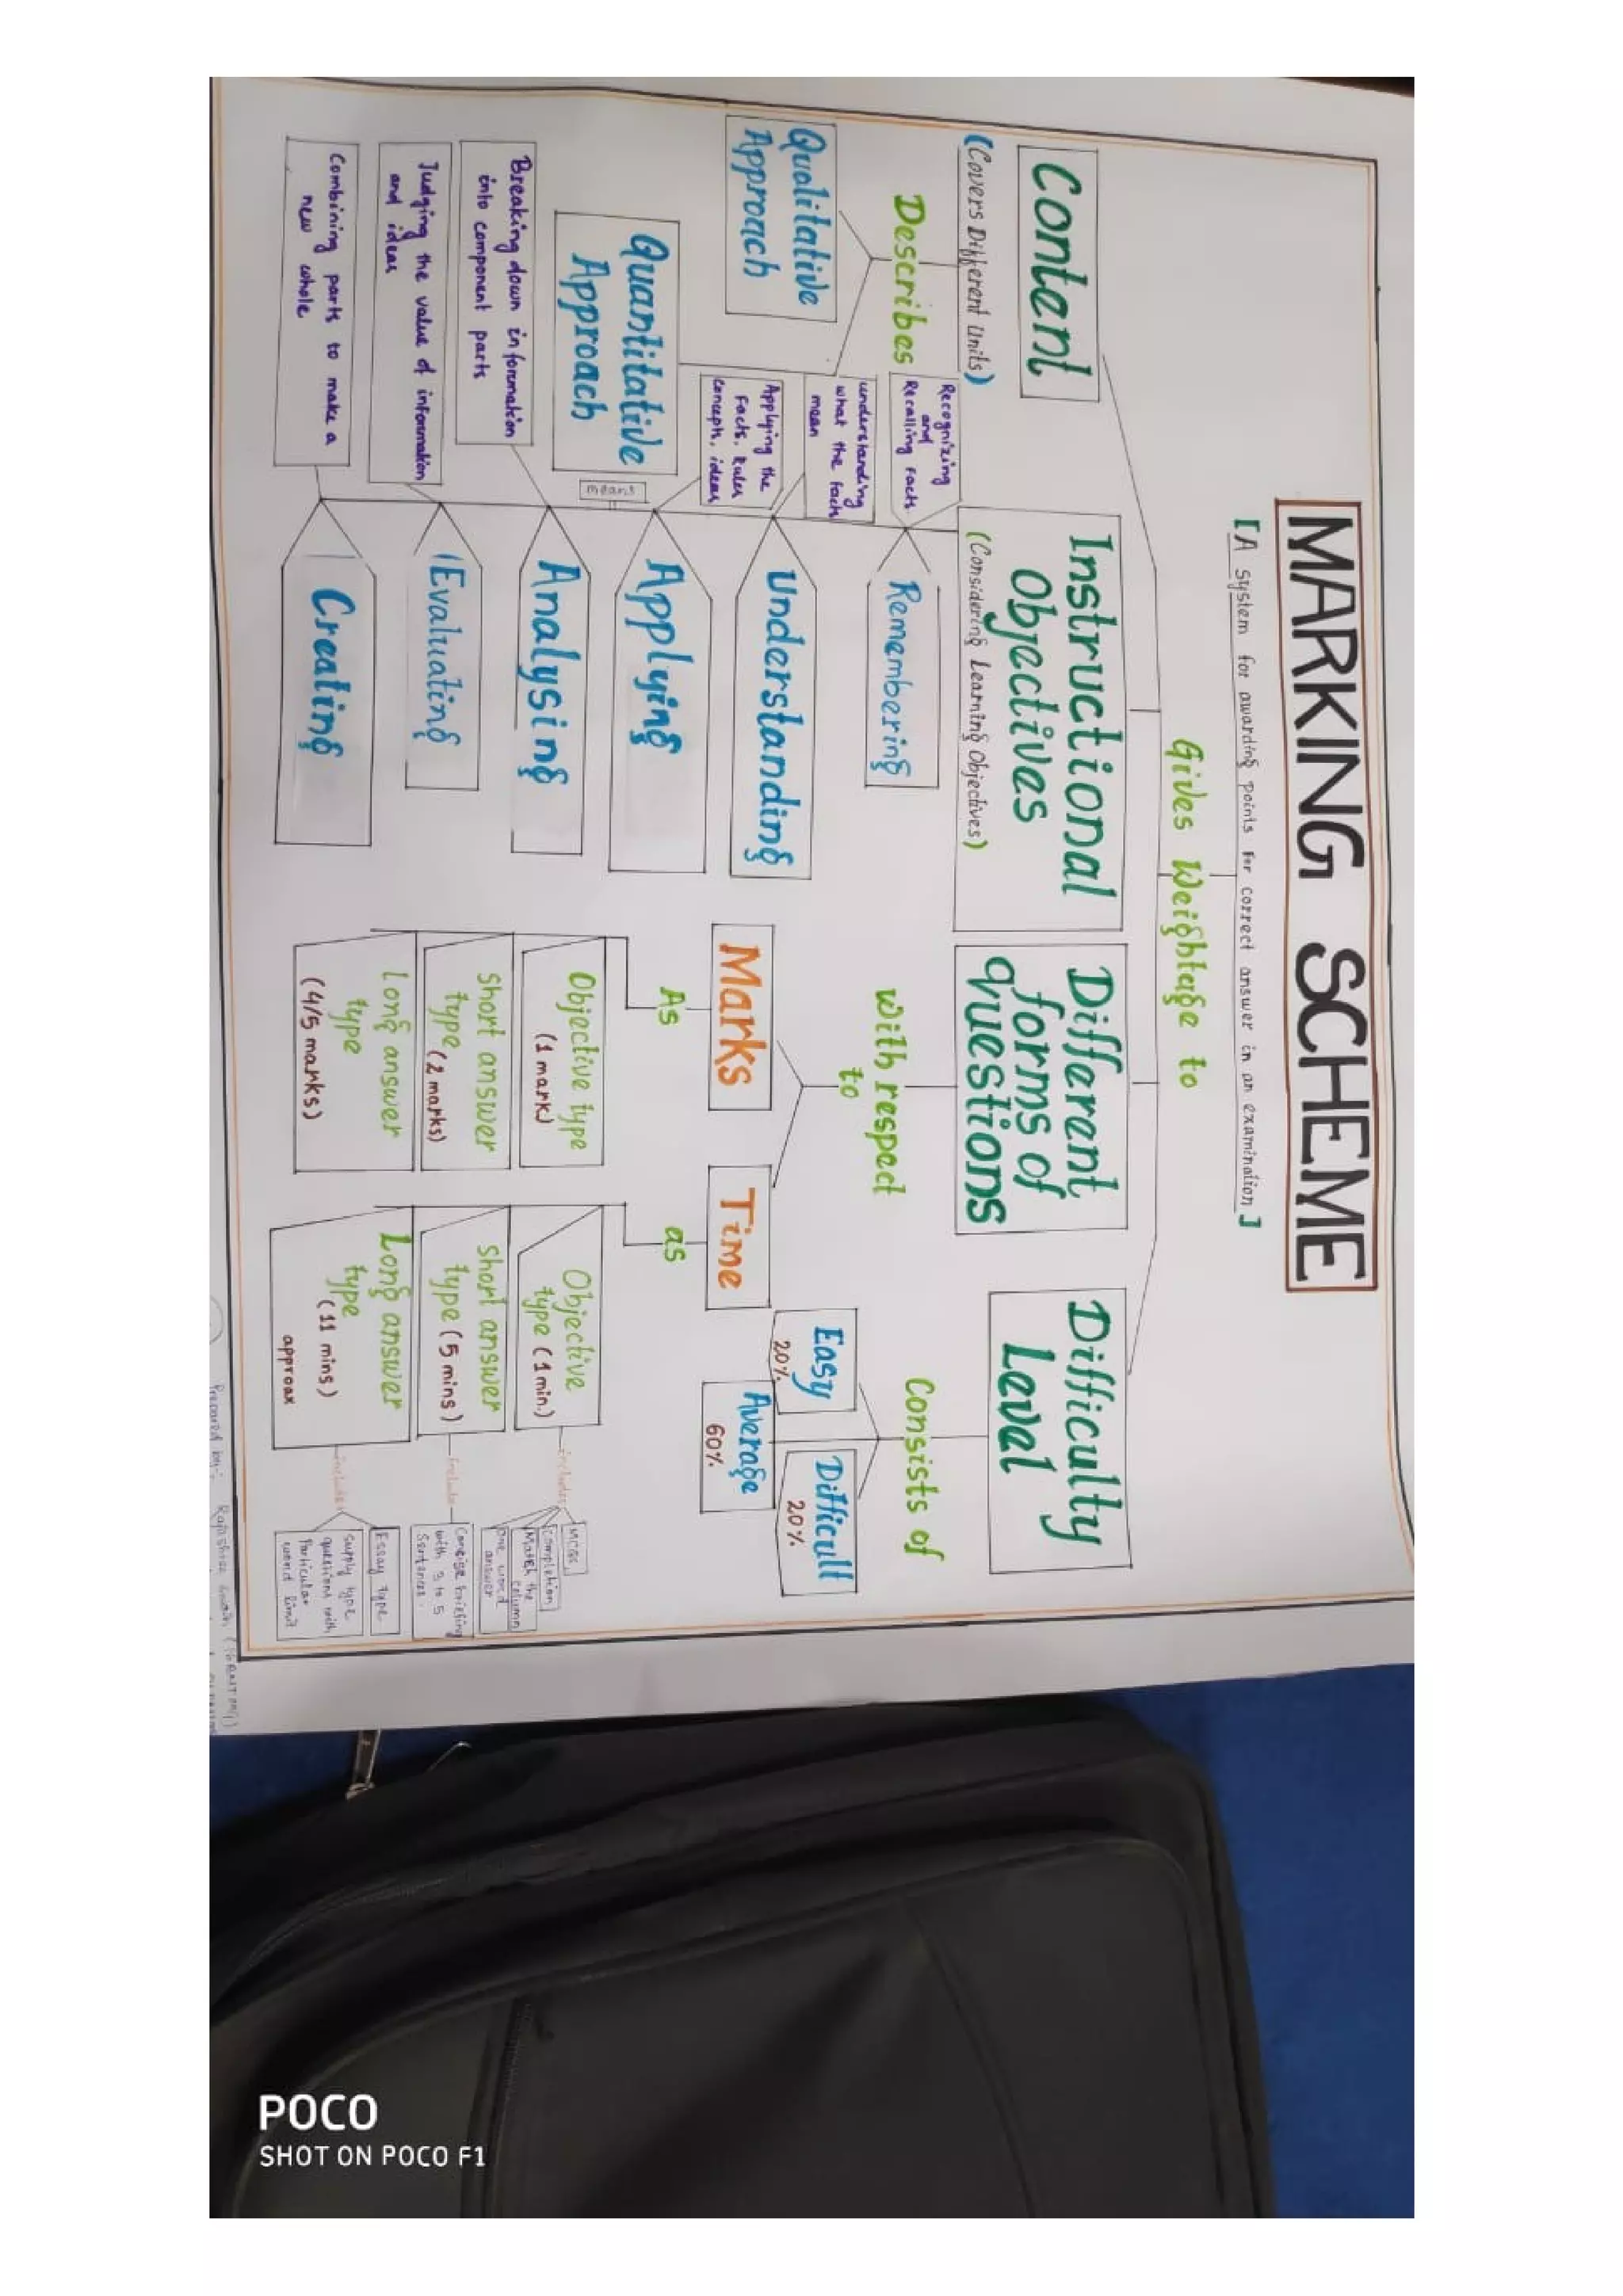 MARKING SCHEME
[A system for awarding points for correct answer in an examination]
Gives Weightage to
Content
(Covers Different Units)
Describes
Qualitative
Approach
Quantitative
Approach
Instructional
Objectives
(Considering Learning Objectives)
Recognizing
and
Recalling facts
Remembering
understanding
what the facts
mean
Understanding
Applying the
Facts, Rules
concepts, ideas
Applying
means
Breaking down information
into component parts
Analysing
Judging the value of information
and ideas
Evaluating
Combining parts to make a
new whole
Creating
Different
forms of
questions
with respect
to
Marks
As
Objective type
(1 mark)
Short answer
type (2 marks)
Long answer
type
(4/5 marks)
Time
as
Objective
type (1 min.)
includes
MCQs
Completion
Match the
column
one word
answer
Short answer
type (5 mins)
include
Concise briefing
with 3 to 5
Sentences.
Long answer
type
(11 mins)
approax
includes
Essay type
supply type
questions with
Particular
word limit
Difficulty
Leval
Consists of
Easy
20%
Average
60%
Difficult
20%
Prepared by:-
POCO
SHOT ON POCO F1